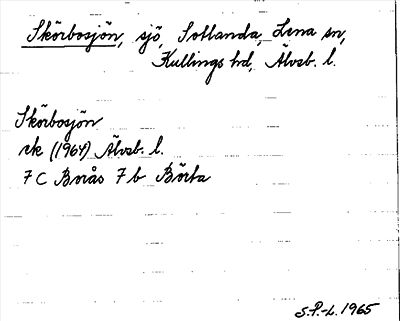 Skörbosjön, sjö, Sollanda, Lena sn,
Kullings hd, Älvsb. l.
Skörbosjön
rk (1964) Älvsb. l.
7 C Borås 7 b Börta
S.P.-L. 1965